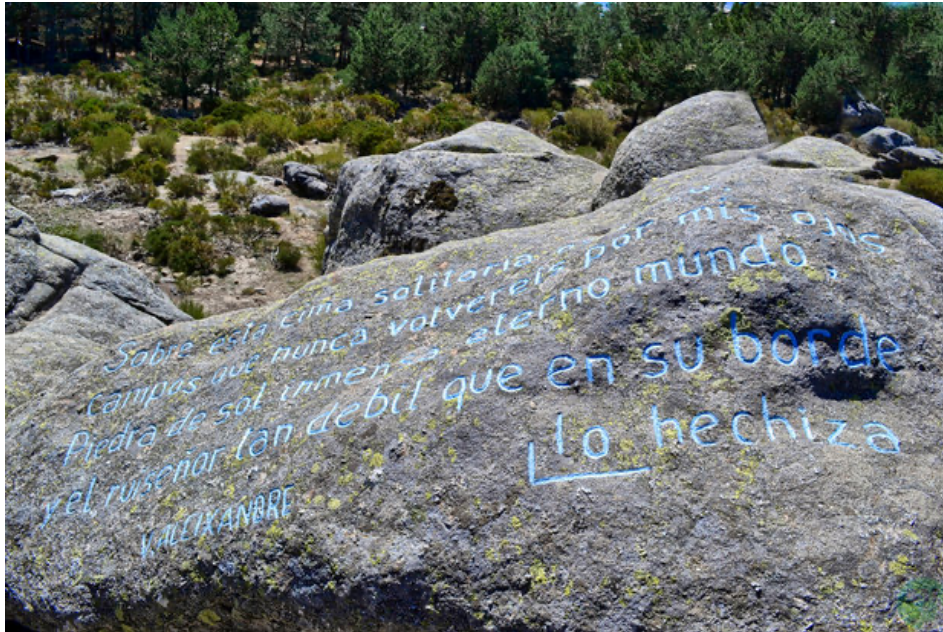 Sobre esta cima solitaria
campos que nunca volvereis por mis ojos
Piedra de sol inmensa eterno mundo,
y el ruiseñor tan debil que en su borde
lo hechiza
V.ALEIXANDRE